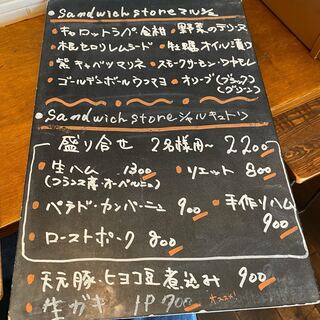 ・Sandwich storeマルシェ
・キャロットラペ 金柑 ・野菜のテリーヌ
・根セロリレムラード ・牡蠣オイル漬け
・紫キャベツマリネ ・スモークサーモン
・ゴールデンボールウフマヨ ・オリーブ(ブラック)
(グリーン)
・Sandwich storeシャルキュトリ
盛り合せ 2名様用〜 2200
・生ハム 1300 ・リエット 800
(フランス産オーベルニュ)
・パテドカンパーニュ 900 ・手作りハム
900
・ローストポーク 800
・天元豚・ヒヨコ豆煮込み 900
・生ガキ 1P 700 オススメ!